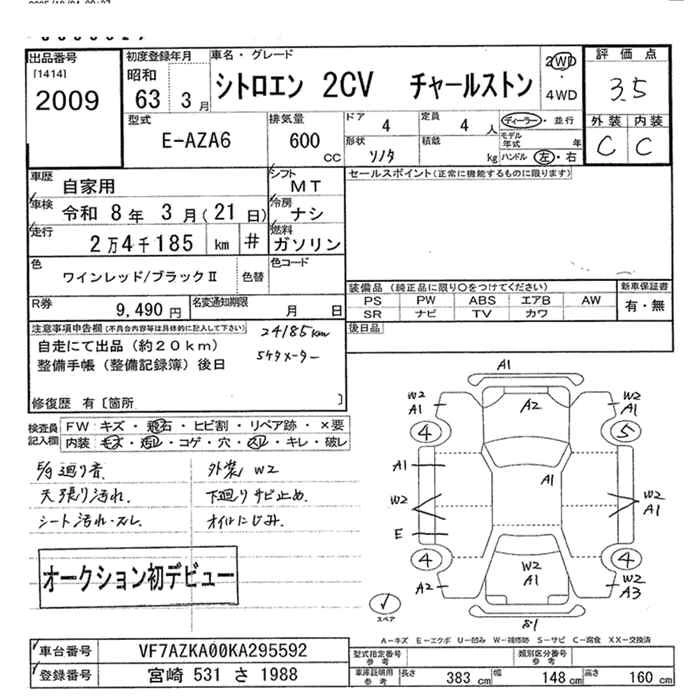 出品番号
[1414]
2009
初度登録年月
昭和
63 3月
車名・グレード
シトロエン 2CV チャールストン
2WD
・
4WD
評価点
3.5
外装 内装
C C
型式
E-AZA6
排気量
600
cc
ドア
4
定員
4 人
ディーラー・並行
モデル年式 年
形状
ソノタ
積載
kg
ハンドル 左・右
車歴
自家用
シフト
MT
車検
令和 8年 3月(21日)
冷房
ナシ
走行
2万4千185 km #
燃料
ガソリン
色
ワインレッド/ブラックⅡ
色替
色コード
R券
9,490円
名変通知期限
月 日
セールスポイント(正常に機能するものに限ります)
装備品(純正品に限り○をつけてください)
PS PW ABS エアB AW
SR ナビ TV カワ
新車保証書
有・無
後日品
注意事項申告欄(不具合内容等は具体的に記入して下さい)
24185km
自走にて出品(約20km)
5ケタメーター
整備手帳(整備記録簿)後日
修復歴 有[箇所 ]
検査員記入欄
FW キズ・飛石・ヒビ割・リペア跡・×要
内装 キズ・汚れ・コゲ・穴・スレ・キレ・破レ
廻り音
外装 W2
天張り汚れ.
下廻りサビ止め.
シート汚れ・スレ
オイルにじみ.
オークション初デビュー
A1
W2 A1
A2
W2 A1
4
5
A1
A1
W2
W2 A1
E
4
4
W2 A1
A2
W2 A3
スペア
S1
A-キズ E-エクボ U-凹み W-補修跡 S-サビ C-腐食 XX-交換済
車台番号
VF7AZKA00KA295592
登録番号
宮崎 531 さ 1988
型式指定番号
参考
類別区分番号
参考
車庫証明用
参考
長さ 383 cm 幅 148 cm 高さ 160 cm